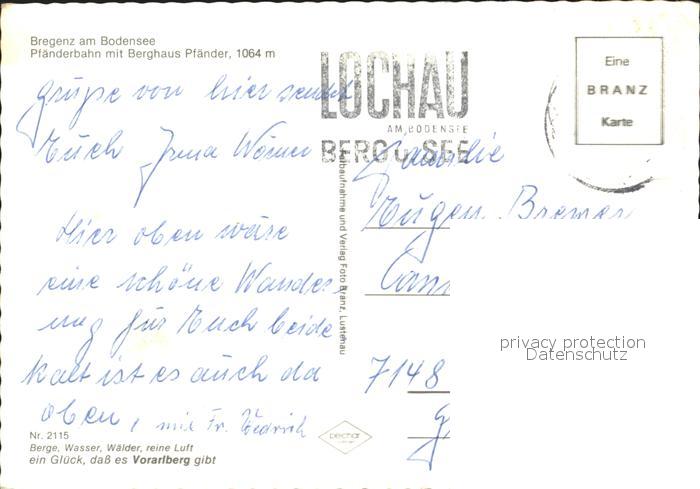 Bregenz am Bodensee
Pfänderbahn mit Berghaus Pfänder, 1064 m
LOCHAU
AM BODENSEE
BERG U. SEE
Eine
BRANZ
Karte
Grüße von hier sendet
Euch Irma Wörner
Hier oben wäre
eine schöne Wander-
ung für Euch beide
kalt ist es auch da
oben, mit Fr.
Farbaufnahme und Verlag Foto Branz, Lustenau
Familie
Eugen Bremer
7148
privacy protection
Datenschutz
pechar
Nr. 2115
Berge, Wasser, Wälder, reine Luft
ein Glück, daß es Vorarlberg gibt